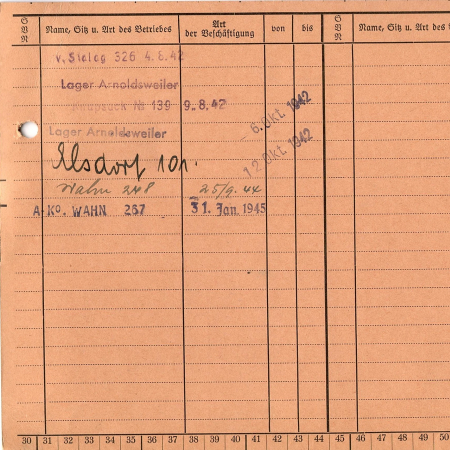 S V N Name, Sitz u. Art des Betriebes Art der Beschäftigung von bis S V N Name, Sitz u. Art des
v. Stalag 326 4.8.42
Lager Arnoldsweiler
№ 139 9.8.42
6. Okt. 1942
Lager Arnoldsweiler
12 Okt. 1942
Elsdorf 101.
Wahn 248 25/9.44
A-Ko. WAHN 267 31. Jan 1945
30 31 32 33 34 35 36 37 38 39 40 41 42 43 44 45 46 47 48 49 50